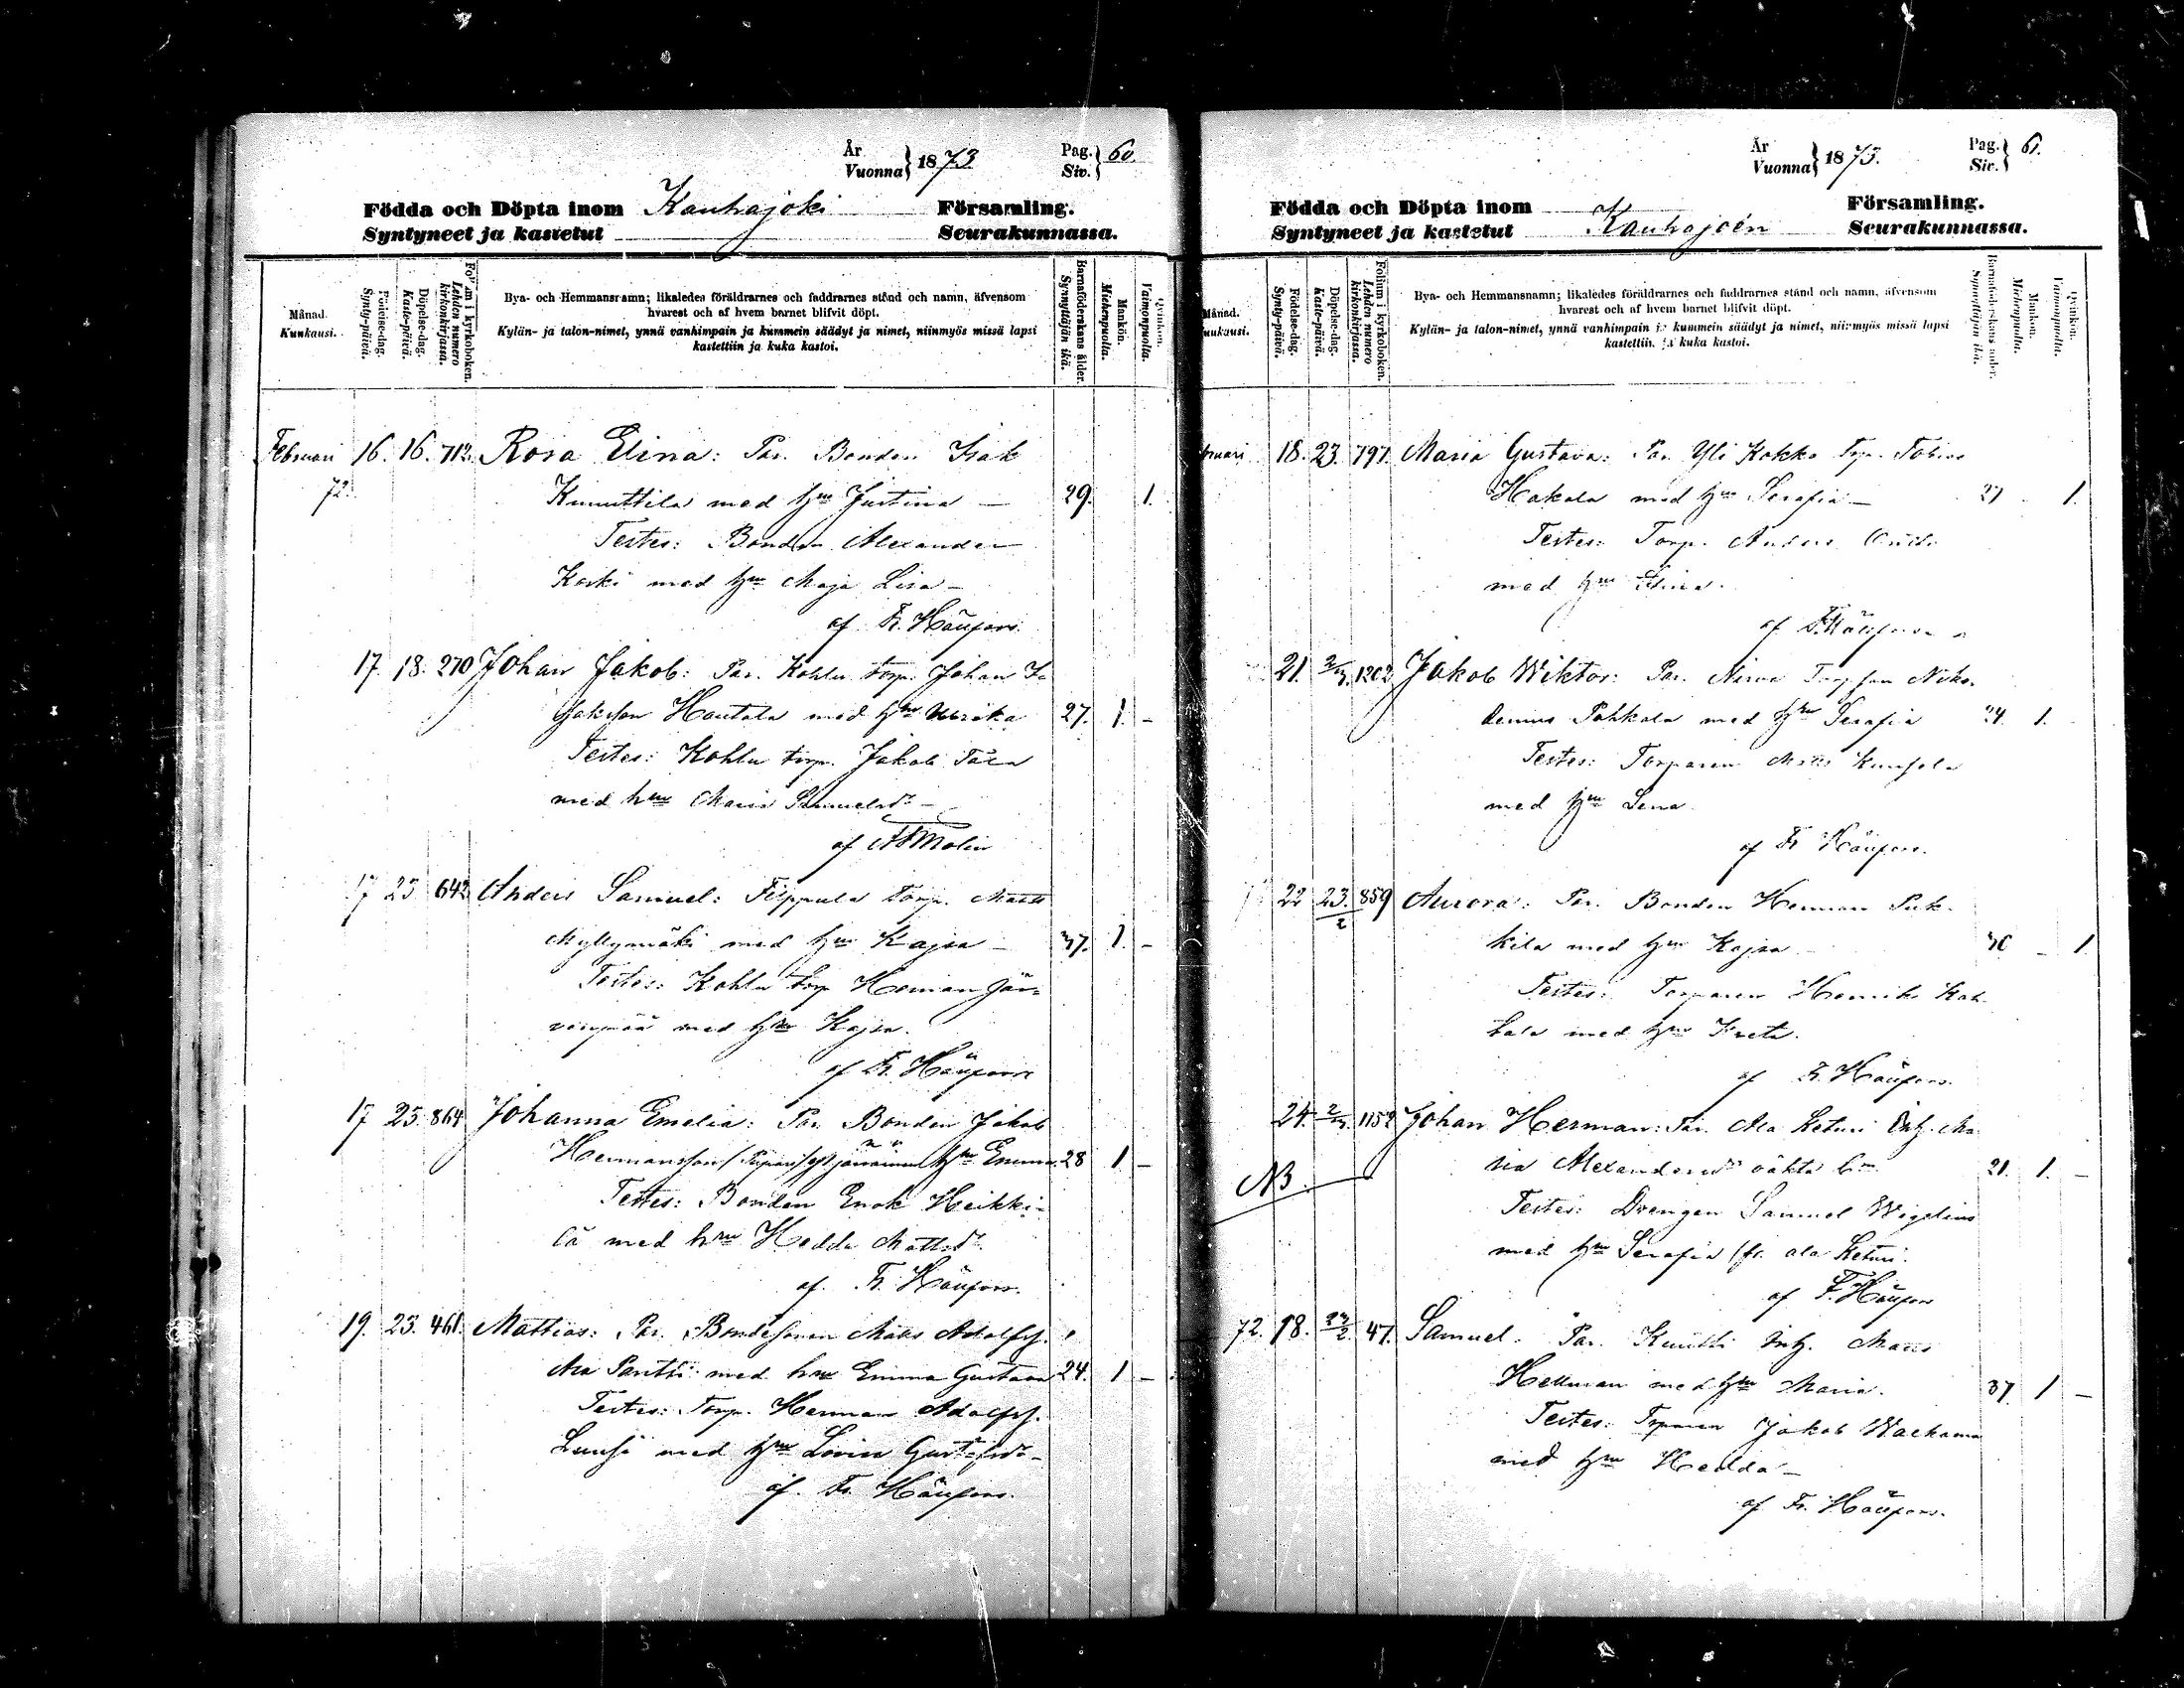 År
Vuonna } 1873
Pag.
Siv. } 60.
Födda och Döpta inom Kauhajoki Församling.
Syntyneet ja kastetut Seurakunnassa.
Månad. Kuukausi.
Födelse-dag. Synty-päivä.
Döpelse-dag. Kaste-päivä.
Folium i kyrkoboken. Lehden numero kirkonkirjassa.
Bya- och Hemmansnamn; likaledes föräldrarnes och faddrarnes stånd och namn, äfvensom
hvarest och af hvem barnet blifvit döpt.
Kylän- ja talon-nimet, ynnä vanhimpain ja kummein säädyt ja nimet, niinmyös missä lapsi
kastettiin ja kuka kastoi.
Barnaföderskans ålder. Synnyttäjän ikä.
Mankön. Miehenpuolia.
Qvinkön. Vaimonpuolia.
Februari 16. 16. 712. Rosa Elina: Par. Bonden Isak
72. Knuuttila med hm Justina — 29. 1.
Testes: Bonden Alexander
Koski med hm Maja Lisa —
af Fr. Häufors.
17. 18. 270 Johan Jakob: Par. Kohlu torp. Johan
Hautala med hm Ulrika 27. 1. -
Testes: Kohlu torp. Jakob
med hm Maria Samuelsdr —
af Molin
17 23 642 Anders Samuel: Filppula torp. Matts
Myllymäki med hm Kajsa — 37. 1. -
Testes: Kohlu torp Herman Jär-
venpää med hm Kajsa.
af Fr. Häufors
17 23. 864 Johanna Emelia: Par. Bonden Jakob
Hermansson hm Emma 28 1 -
Testes: Bonden Enok Heikki-
lä med hm Hedda Mattsdr.
af. Fr. Häufors.
19. 23. 461. Mattias: Par. Bondesonen Matts Adolfss.
Ala Pantti med hm Emma Gustava 24. 1 -
Testes: Torp. Herman Adolfss.
med hm Lovisa Gustafsdr -
af. Fr. Häufors.
År
Vuonna } 1873.
Pag.
Siv. } 61.
Födda och Döpta inom Församling.
Syntyneet ja kastetut Kauhajoen Seurakunnassa.
Månad. Kuukausi.
Födelse-dag. Synty-päivä.
Döpelse-dag. Kaste-päivä.
Folium i kyrkoboken. Lehden numero kirkonkirjassa.
Bya- och Hemmansnamn; likaledes föräldrarnes och faddrarnes stånd och namn, äfvensom
hvarest och af hvem barnet blifvit döpt.
Kylän- ja talon-nimet, ynnä vanhimpain ja kummein säädyt ja nimet, niinmyös missä lapsi
kastettiin ja kuka kastoi.
Barnaföderskans ålder. Synnyttäjän ikä.
Mankön. Miehenpuolia.
Qvinkön. Vaimonpuolia.
bruari 18. 23. 797. Maria Gustava: Par. Yli Kokko Torp. Tobias
Hakala med hm Serafia — 27 1.
Testes: Torp. Anders
med hm
af Fr. Häufors
21. 2/3. 1202 Jakob Wiktor: Par. Niko-
demus Pohkala med hm Serafia 24. 1.
Testes: Torparen Matts
med hm Lena
af Fr Häufors.
22 23./2 859 Aurora: Par. Bonden Herman Puk-
kila med hm Kajsa — 1
Testes: Torparen Henrik
med hm Greta.
af Fr. Häufors.
24. 2/3. 1152 Johan Herman: Par. Ala Keturi Inh. Ma-
NB. ria Alexandersdr oäkta bn. 21. 1. -
Testes: Drengen Samuel Wigelius
med hm Serafia fr. ala Keturi.
af F. Häufors
72. 18. 47. Samuel. Par. Knuutti Inh. Matts
Hellman med hm Maria. 37. 1 -
Testes: Torparen Jakob
med hm Hedda —
af Fr. Häufors.